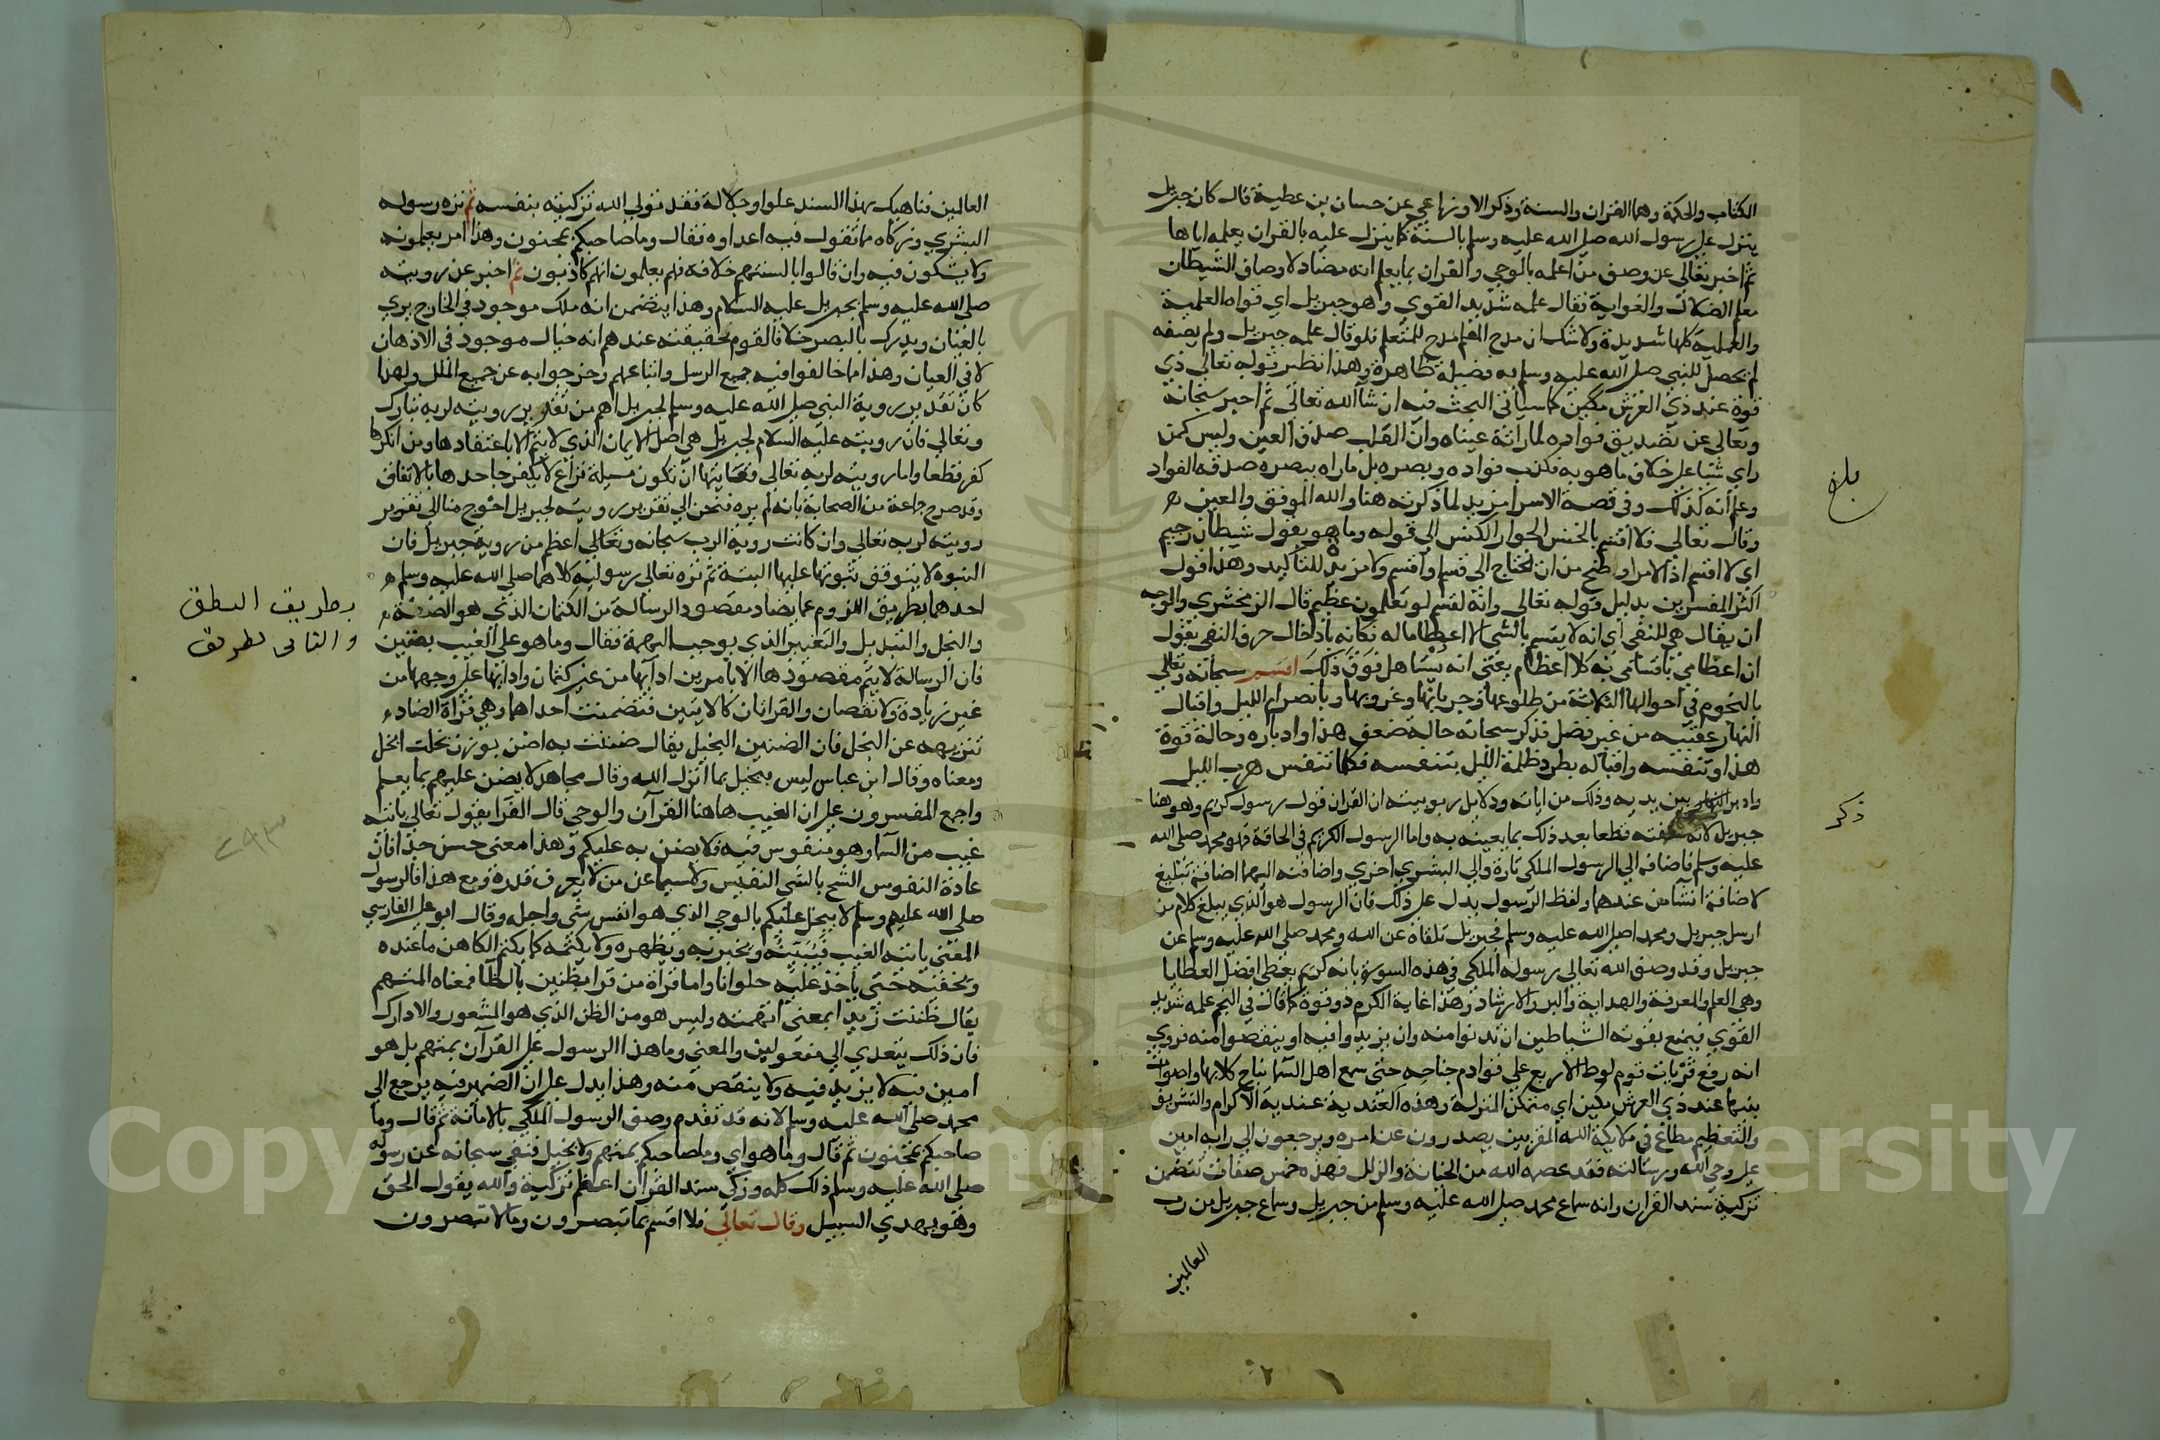 الكتاب والحكمة وهما القران والسنة وذكر الاوزاعي عن حسان بن عطية قال كان جبريل
ينزل على رسول الله صلى الله عليه وسلم بالسنة كما ينزل عليه بالقران يعلمه اياها
ثم اخبر تعالى عن وصف من اعلمه بالوحي والقران بما يعلم انه مضاد لاوصاف الشيطان
معلم الضلال والغواية فقال علمه شديد القوي وهو جبريل اي قواه العلمية
والعملية كلها شديدة ولا شك ان مدح المعلم مدح للمتعلم فلو قال علمه جبريل ولم يصفه
لم يحصل للنبي صلى الله عليه وسلم به فضيلة ظاهرة وهذا نظير قوله تعالى ذي
قوة عند ذي العرش مكين كما سياتي البحث فيه ان شا الله تعالى ثم اخبر سبحانه
وتعالى عن تصديق فواده لما راته عيناه وان القلب صدق العين وليس كمن
راي شيا على خلاف ما هو به فكذب فواده وبصره بل ماراه ببصره صدقه الفواد
وعلم انه كذلك وفي قصة الاسرا مزيد لما ذكرته هنا والله الموفق والمعين
وقال تعالى فلا اقسم بالخنس الجوار الكنس الى قوله وما هو بقول شيطان رجيم
اي لا اقسم اذ الامر اوضح من ان يحتاج الى قسم او اقسم ولا مزيدة للتاكيد وهذا قول
اكثر المفسرين بدليل قوله تعالى وانه لقسم لو تعلمون عظيم قال الزمخشري والوجه
ان يقال هي للنفي اي انه لا يقسم بالشي الا اعظاما له فكانه بادخال حرف النفي يقول
ان اعظامي باقسامي به كلا اعظام يعني انه يستاهل فوق ذلك اقسم سبحانه وتعالى
بالنجوم في احوالها الثلاثة من طلوعها وجريانها وغروبها وبانصرام الليل واقبال
النهار عقيبه من غير فصل فذكر سبحانه حالة ضعف هذا وادباره وحالة قوة
هذا وتنفسه واقباله يطرد ظلمة الليل بتنفسه فكلما تنفس هرب الليل
وادبر النهار بين يديه وذلك من اياته ودلايل ربوبيته ان القران قول رسول كريم وهو هنا
جبريل لانه صفته قطعا بعد ذلك بما يعينه به واما الرسول الكريم في الحاقة فهو محمد صلى الله
عليه وسلم فاضافه الى الرسول الملكي تارة والى البشري اخري واضافته اليهما اضافة تبليغ
لا اضافة انشا من عندهما ولفظ الرسول يدل على ذلك فان الرسول هو الذي يبلغ كلام من
ارسل جبريل ومحمد صلى الله عليه وسلم فجبريل تلقاه عن الله ومحمد صلى الله عليه وسلم عن
جبريل وقد وصف الله تعالى رسوله الملكي في هذه السورة بانه كريم يعطي افضل العطايا
وهي العلم والمعرفة والهداية والبر والارشاد وهذا غاية الكرم ذو قوة كما قال في النجم علمه شديد
القوي فيمنع بقوته الشياطين ان تدنوا منه وان يزيدوا فيه او ينقصوا منه وروي
انه رفع قريات قوم لوط الاربع على قوادم جناحه حتى سمع اهل السما نباح كلابها واصوات
بنيها عند ذي العرش مكين اي متمكن المنزلة وهذه العندية عندية الاكرام والتشريف
والتعظيم مطاع في ملايكة الله المقربين يصدرون عن امره ويرجعون الى رايه امين
على وحي الله ورسالته فقد عصمه الله من الخيانة والزلل فهذه خمس صفات تتضمن
تزكية سند القران وانه سماع محمد صلى الله عليه وسلم من جبريل وسماع جبريل من رب
العالمين
بلغ
ذكر
العالمين فناهيك بهذا السند علوا وجلالة فقد تولى الله تزكيته بنفسه ثم نزه رسوله
البشري وزكاه مما تقول فيه اعداوه فقال وما صاحبكم بمجنون وهذا امر يعلمونه
ولا يشكون فيه وان قالوا بالسنتهم خلافه فهم يعلمون انهم كاذبون ثم اخبر عن رويته
صلى الله عليه وسلم لجبريل عليه السلام وهذا يتضمن انه ملك موجود في الخارج يري
بالعيان ويدرك بالبصر خلافا لقوم حقيقته عندهم انه خيال موجود في الاذهان
لا في العيان وهذا مما خالفوا فيه جميع الرسل واتباعهم وخرجوا به عن جميع الملل ولهذا
كان تقرير روية النبي صلى الله عليه وسلم لجبريل اهم من تقرير رويته لربه تبارك
وتعالى فان رويته عليه السلام لجبريل هي اصل الايمان الذي لا يتم الا باعتقادها ومن انكرها
كفر قطعا واما رويته لربه تعالى فغايتها ان تكون مسيلة نزاع لا يكفر جاحدها بالاتفاق
وقد صرح جماعة من الصحابة بانه لم يره فنحن الى تقرير رويته لجبريل احوج منا الى تقرير
رويته لربه تعالى وان كانت روية الرب سبحانه وتعالى اعظم من روية جبريل فان
النبوة لا يتوقف ثبوتها عليها البتة ثم نزه تعالى رسوليه كلاهما صلى الله عليه وسلم
احدهما بطريق اللزوم عما يضاد مقصود الرسالة من الكتمان الذي هو الضنة
والبخل والتبديل والتغيير الذي يوجب التهمة فقال وما هو على الغيب بضنين
فان الرسالة لا يتم مقصودها الا بامرين ادايها من غير كتمان وادايها على وجهها من
غير زيادة ولا نقصان والقراتان كالايتين فتضمنت احداهما وهي قراة الضاد
تنزيهه عن البخل فان الضنين البخيل يقال ضننت به اضن بوزن بخلت ابخل
ومعناه وقال ابن عباس ليس ببخيل بما انزل الله وقال مجاهد لا يضن عليهم بما يعلم
واجمع المفسرون على ان الغيب هاهنا القران والوحي قال الفرا يقول تعالى ياتيه
غيب من السما وهو منفوس فيه فلا يضن به عليكم وهذا معنى حسن جدا فان
عادة النفوس الشح بالشي النفيس ولا سيما عن من لا يعرف قدره ومع هذا فالرسول
صلى الله عليه وسلم لا يبخل عليكم بالوحي الذي هو انفس شي واجله وقال ابو علي الفارسي
المعنى ياتيه الغيب فيبينه ويخبر به ويظهره ولا يكتمه كما يكتم الكاهن ما عنده
ويخفيه حتى ياخذ عليه حلوانا واما قراة من قرا بظنين بالظا فمعناه المتهم
يقال ظننت زيدا بمعنى اتهمته وليس هو من الظن الذي هو الشعور والادراك
فان ذلك يتعدي الى مفعولين والمعني وما هذا الرسول على القران بمتهم بل هو
امين فيه لا يزيد فيه ولا ينقص منه وهذا يدل على ان الضمير فيه يرجع الى
محمد صلى الله عليه وسلم لانه قد تقدم وصف الرسول الملكي بالامانة ثم قال وما
صاحبكم بمجنون ثم قال وما هو اي وما صاحبكم بمتهم ولا بخيل فنفي سبحانه عن رسوله
صلى الله عليه وسلم ذلك كله وزكى سند القران اعظم تزكية والله يقول الحق
وهو يهدي السبيل وقال تعالى فلا اقسم بما تبصرون وما لا تبصرون
بطريق النطق
والثاني بطريق
Copy King S University